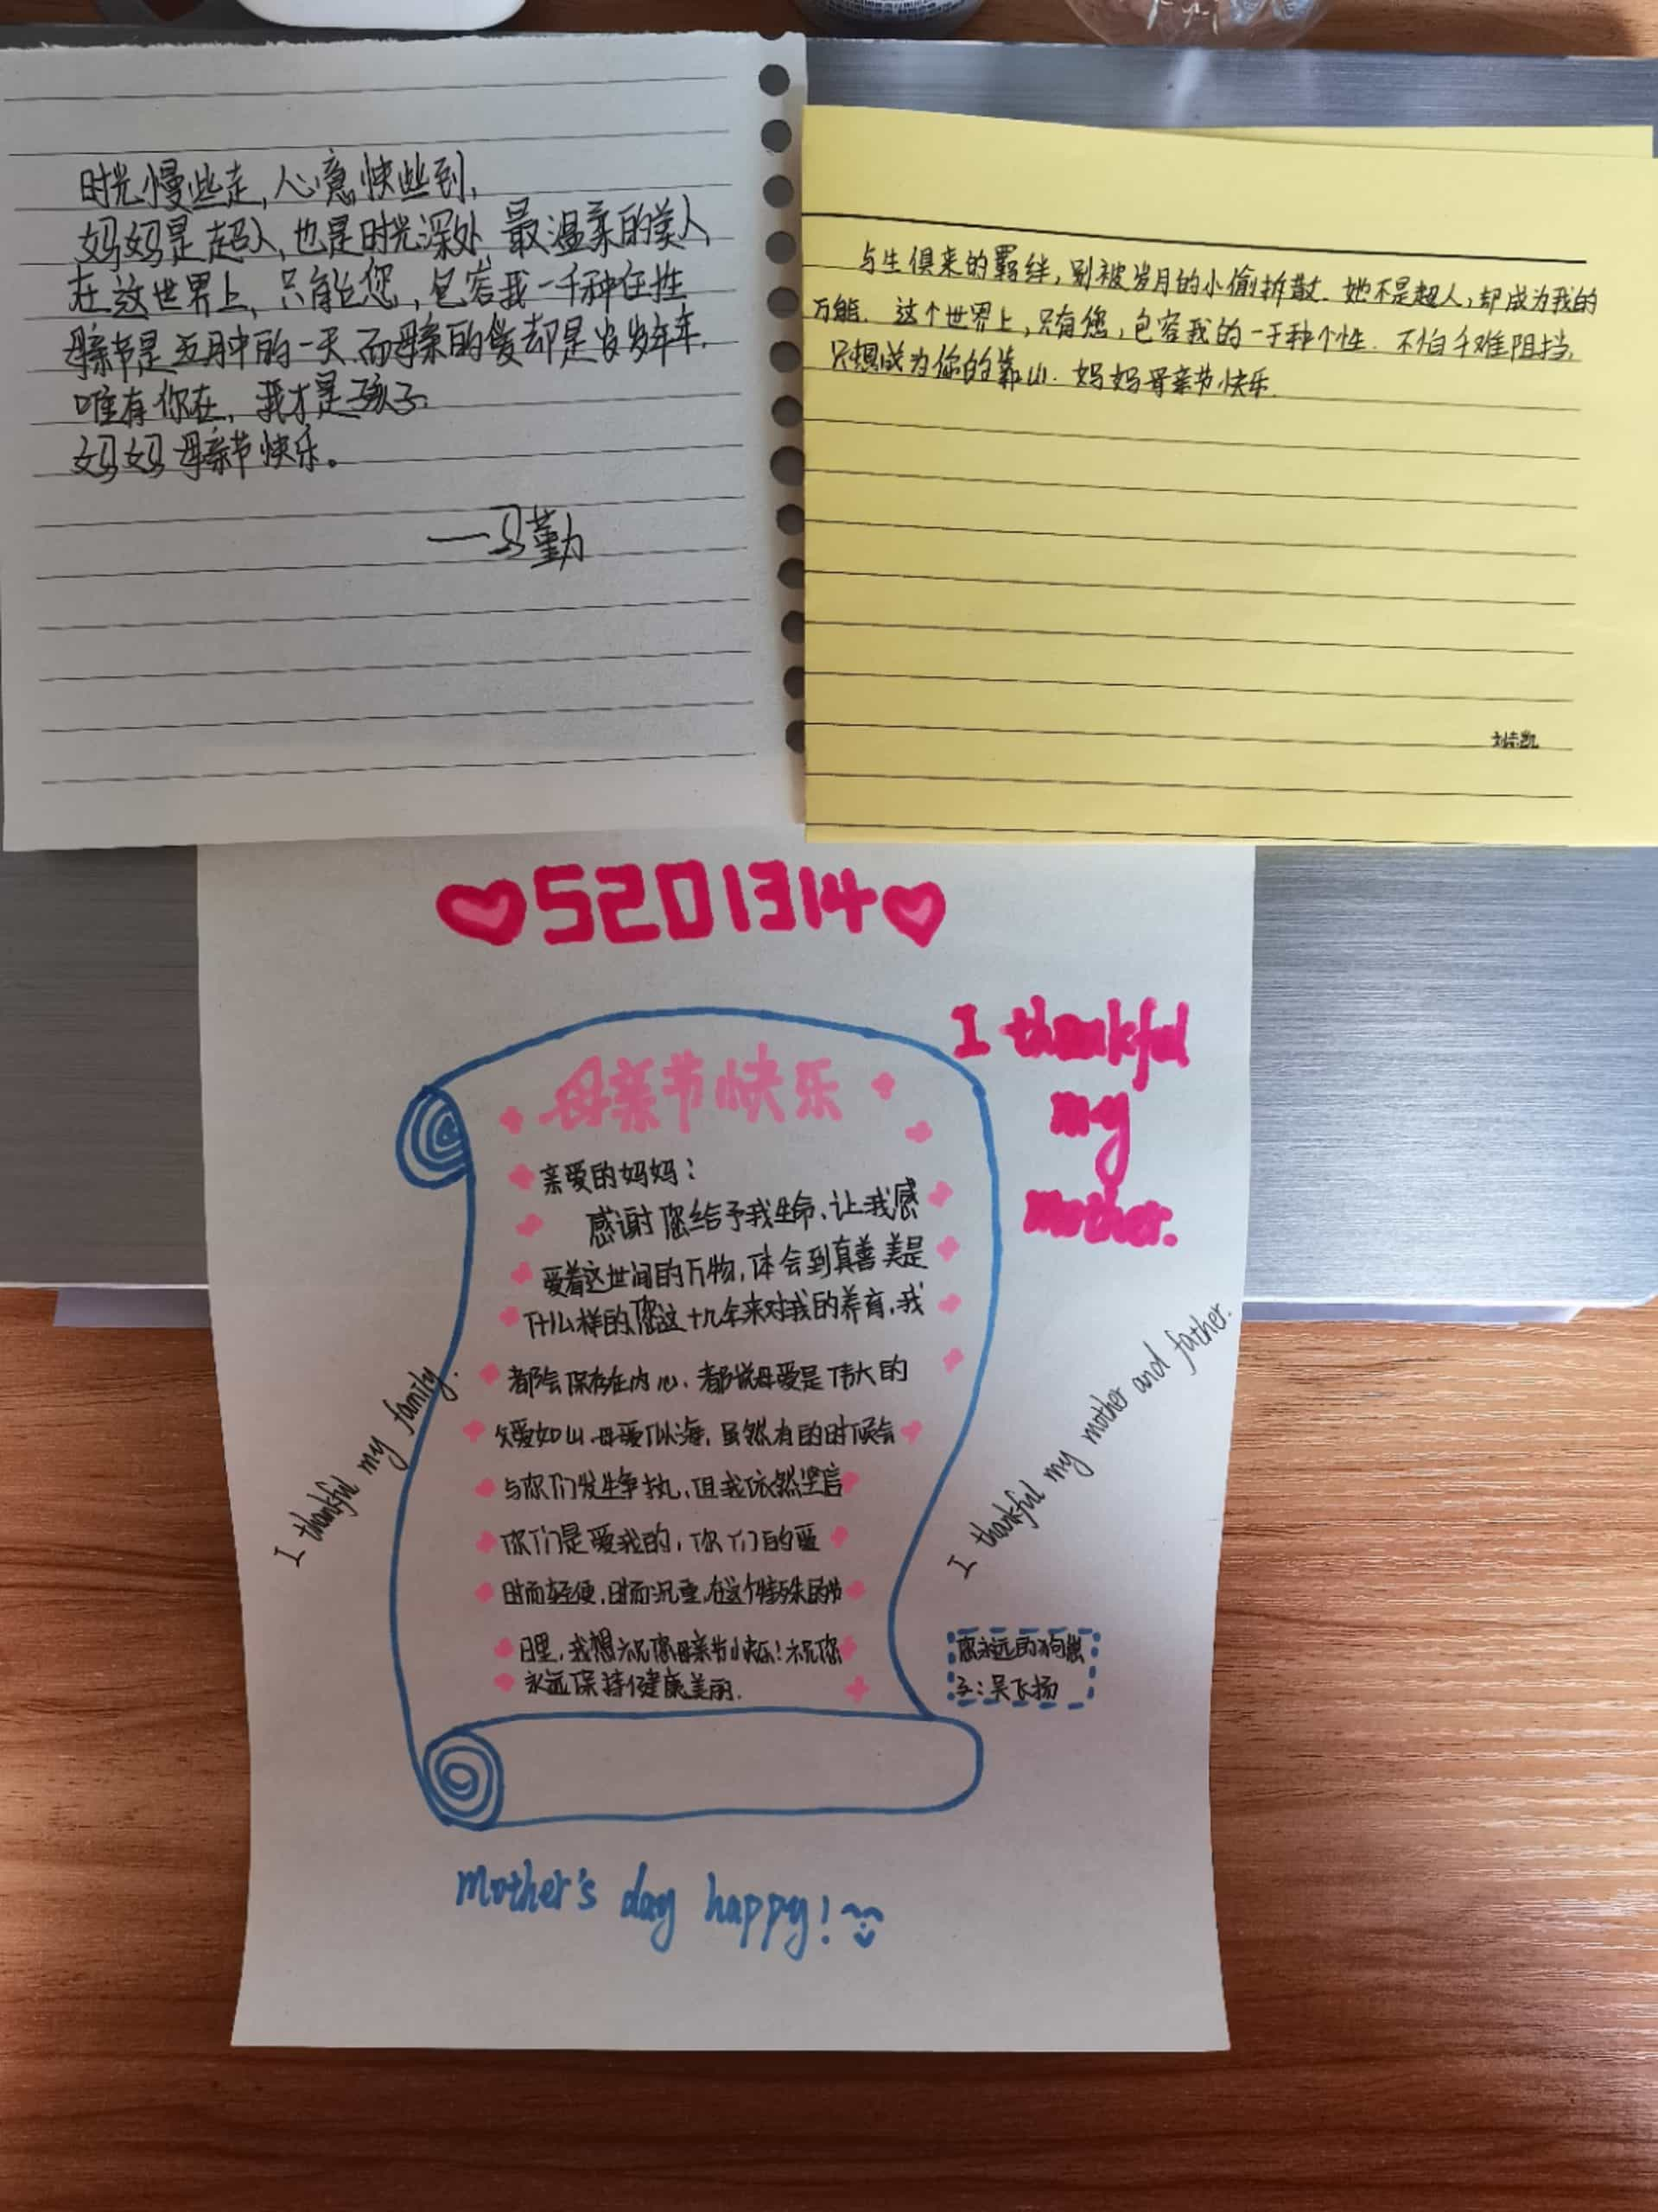 时光慢些走,心意快些到,
妈妈是超人,也是时光深处,最温柔的美人
在这世界上,只有您,包容我一千种任性
母亲节是五月中的一天,而母亲的爱却是岁岁年年.
唯有你在,我才是孩子.
妈妈母亲节快乐。
——马勤
与生俱来的羁绊,别被岁月的小偷拆散.她不是超人,却成为我的
万能.这个世界上,只有您,包容我的一千种个性.不怕千难阻挡,
只想成为你的靠山.妈妈母亲节快乐.
5201314
I thankful
my
mother.
母亲节快乐
亲爱的妈妈:
感谢您给予我生命,让我感
爱着这世间的万物,体会到真善美是
什么样的,您这十几年来对我的养育,我
都会保存在内心.都说母爱是伟大的
父爱如山,母爱似海,虽然有的时候会
与你们发生争执,但我依然坚信
你们是爱我的,你们的爱
时而轻便,时而沉重,在这个特殊的节
日里,我想祝您母亲节快乐!祝您
永远保持健康美丽.
I thankful my family.
I thankful my mother and father.
您永远的狗崽
子:吴飞扬
mother's day happy!